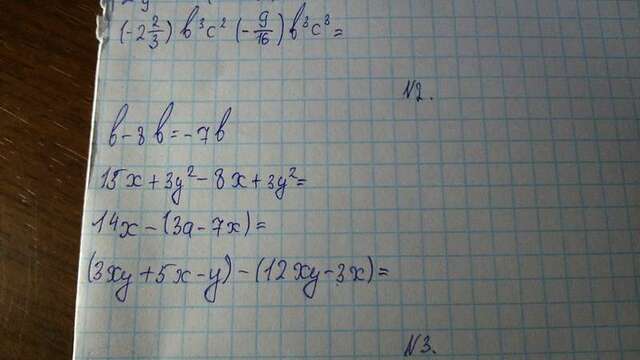 (-2 2/3) b³c² (-9/16) b³c⁸ =
N2.
b - 8b = -7b
15x + 3y² - 8x + 3y² =
14x - (3a - 7x) =
(3xy + 5x - y) - (12xy - 3x) =
N3.